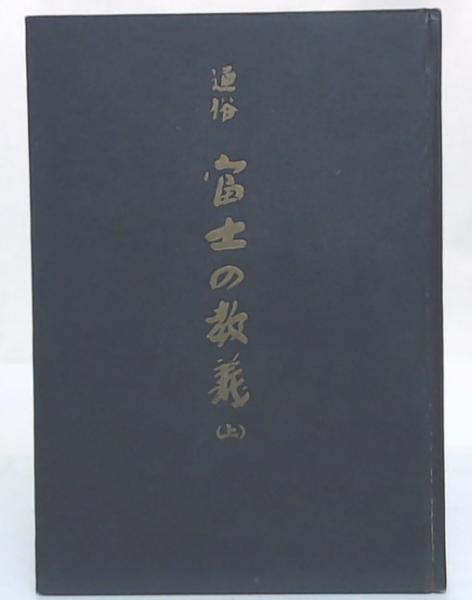 通俗
富士の教義(上)